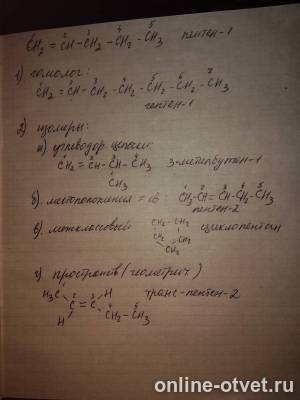 1 2 3 4 5
CH₂ = CH - CH₂ - CH₂ - CH₃ пентен-1
1) гомолог:
1 2 3 4 5 6 7
CH₂ = CH - CH₂ - CH₂ - CH₂ - CH₂ - CH₃
гептен-1
2) изомеры:
а) углеводор. цепи:
1 2 3 4
CH₂ = CH - CH - CH₃ 3-метилбутен-1
CH₃
б) местоположения = св: CH₃ - CH = CH - CH₂ - CH₃
пентен-2
в) межклассовый циклопентан
г) пространств (геометрич)
H₃C H транс-пентен-2
C = C
H CH₂ - CH₃
online-otvet.ru